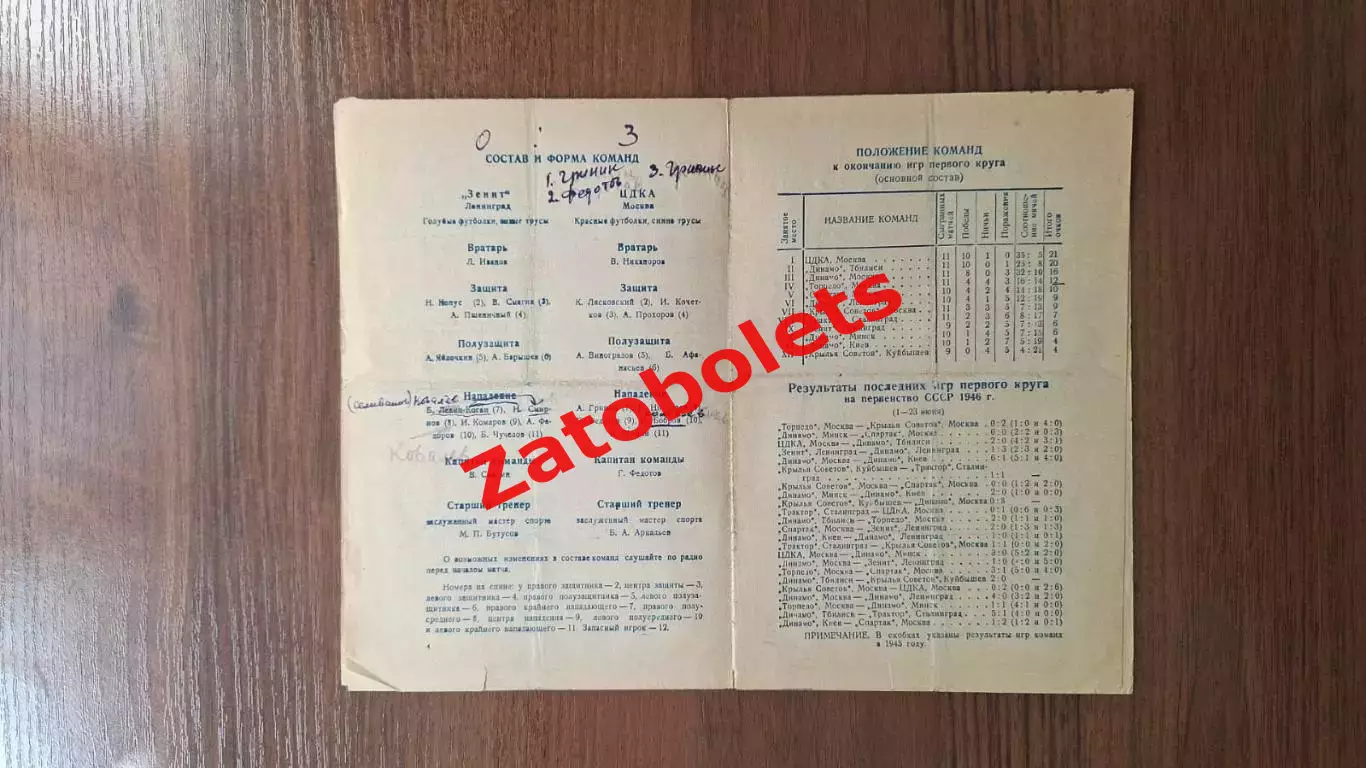 0 : 3
СОСТАВ И ФОРМА КОМАНД
1. Гринин 3. Гринин
2. Федотов
„Зенит" ЦДКА
Ленинград Москва
Голубые футболки, трусы Красные футболки, синие трусы
Вратарь Вратарь
Л. Иванов В. Никаноров
Защита Защита
Н. Копус (2), В. Сынгия (3), К. Лясковский (2), И. Кочет-
А. Пшеничный (4) ков (3), А. Прохоров (4)
Полузащита Полузащита
А. Яблочкин (5), А. Барышев (6) А. Виноградов (5), Б. Афа-
насьев (6)
Нападение Нападение
Б. Левин-Коган (7), Н. Смир- А. Грин
нов (8), И. Комаров (9), А. Фе- (9), Бобров (10),
доров (10), Б. Чучелов (11) (11)
Ковалев
Капитан команды Капитан команды
В. Г. Федотов
Старший тренер Старший тренер
заслуженный мастер спорта заслуженный мастер спорта
М. П. Бутусов Б. А. Аркадьев
О возможных изменениях в составе команд слушайте по радио
перед началом матча.
Номера на спине: у правого защитника — 2, центра защиты — 3,
левого защитника — 4, правого полузащитника — 5, левого полуза-
щитника — 6, правого крайнего нападающего — 7, правого полу-
среднего — 8, центра нападения — 9, левого полусреднего — 10
и левого крайнего нападающего — 11. Запасный игрок — 12.
4
ПОЛОЖЕНИЕ КОМАНД
к окончанию игр первого круга
(основной состав)
Занятое место НАЗВАНИЕ КОМАНД Сыгранных матчей Победы Ничьи Поражения Соотноше-ние мячей Итого очков
I ЦДКА, Москва 11 10 1 0 35 : 5 21
II „Динамо", Тбилиси 11 10 0 1 25 : 8 20
III „Динамо", Москва 11 8 0 3 32 : 10 16
IV „Торпедо", Москва 11 4 4 3 16 : 14 12
V 10 4 2 4 14 : 18 10
VI Ленинград 10 4 1 5 12 : 19 9
VII „Крылья Советов", Москва 11 3 3 5 7 : 13 9
Сталинград 11 2 3 6 8 : 17 7
Ленинград 9 2 2 5 7 : 13 6
Минск 10 1 4 5 7 : 15 6
„Динамо", Киев 10 1 2 7 5 : 19 4
„Крылья Советов", Куйбышев 9 0 4 5 4 : 21 4
Результаты последних игр первого круга
на первенство СССР 1946 г.
(1—23 июня)
„Торпедо", Москва — „Крылья Советов", Москва . 0 : 2 (1 : 0 и 4 : 0)
„Динамо", Минск — „Спартак", Москва . . . 0 : 0 (2 : 2 и 0 : 3)
ЦДКА, Москва — „Динамо", Тбилиси . . . 2 : 0 (4 : 2 и 3 : 1)
„Зенит", Ленинград — „Динамо", Ленинград . . 1 : 3 (2 : 3 и 2 : 0)
„Динамо", Москва — „Динамо", Киев . . . 6 : 1 (5 : 1 и 4 : 0)
„Крылья Советов", Куйбышев — „Трактор", Сталин-
град . . . 1 : 1 —
„Крылья Советов", Москва — „Спартак", Москва . 0 : 0 (1 : 2 и 2 : 0)
„Динамо", Минск — „Динамо", Киев . . . 2 : 0 (1 : 0 и 0 : 0)
„Крылья Советов", Куйбышев — „Динамо", Москва 0 : 8 —
„Трактор", Сталинград — ЦДКА, Москва . . . 0 : 1 (0 : 6 и 0 : 3)
„Динамо", Тбилиси — „Торпедо", Москва . . . 2 : 0 (1 : 1 и 1 : 0)
„Спартак", Москва — „Зенит", Ленинград . . . 2 : 0 (1 : 3 и 1 : 3)
„Динамо", Киев — „Динамо", Ленинград . . . 1 : 0 (1 : 1 и 0 : 1)
„Трактор", Сталинград — „Крылья Советов", Москва 1 : 1 (0 : 0 и 2 : 0)
ЦДКА, Москва — „Динамо", Минск . . . 3 : 0 (5 : 2 и 2 : 0)
„Динамо", Москва — „Зенит", Ленинград . . . 1 : 0 (4 : 0 и 5 : 0)
„Торпедо", Москва — „Спартак", Москва . . . 3 : 1 (5 : 0 и 4 : 0)
„Динамо", Тбилиси — „Крылья Советов", Куйбышев 2 : 0 —
„Крылья Советов", Москва — ЦДКА, Москва . . 0 : 2 (0 : 0 и 2 : 6)
„Динамо", Москва — „Динамо", Ленинград . . . 4 : 0 (3 : 2 и 2 : 0)
„Торпедо", Москва — „Динамо", Минск . . . 1 : 1 (4 : 1 и 0 : 0)
„Динамо", Тбилиси — „Трактор", Сталинград . . 5 : 1 (4 : 0 и 2 : 0)
„Динамо", Киев — „Спартак", Москва . . . 1 : 1 (0 : 2 и 0 : 4)
ПРИМЕЧАНИЕ. В скобках указаны результаты игр команд
в 1945 году.
Zatobolets